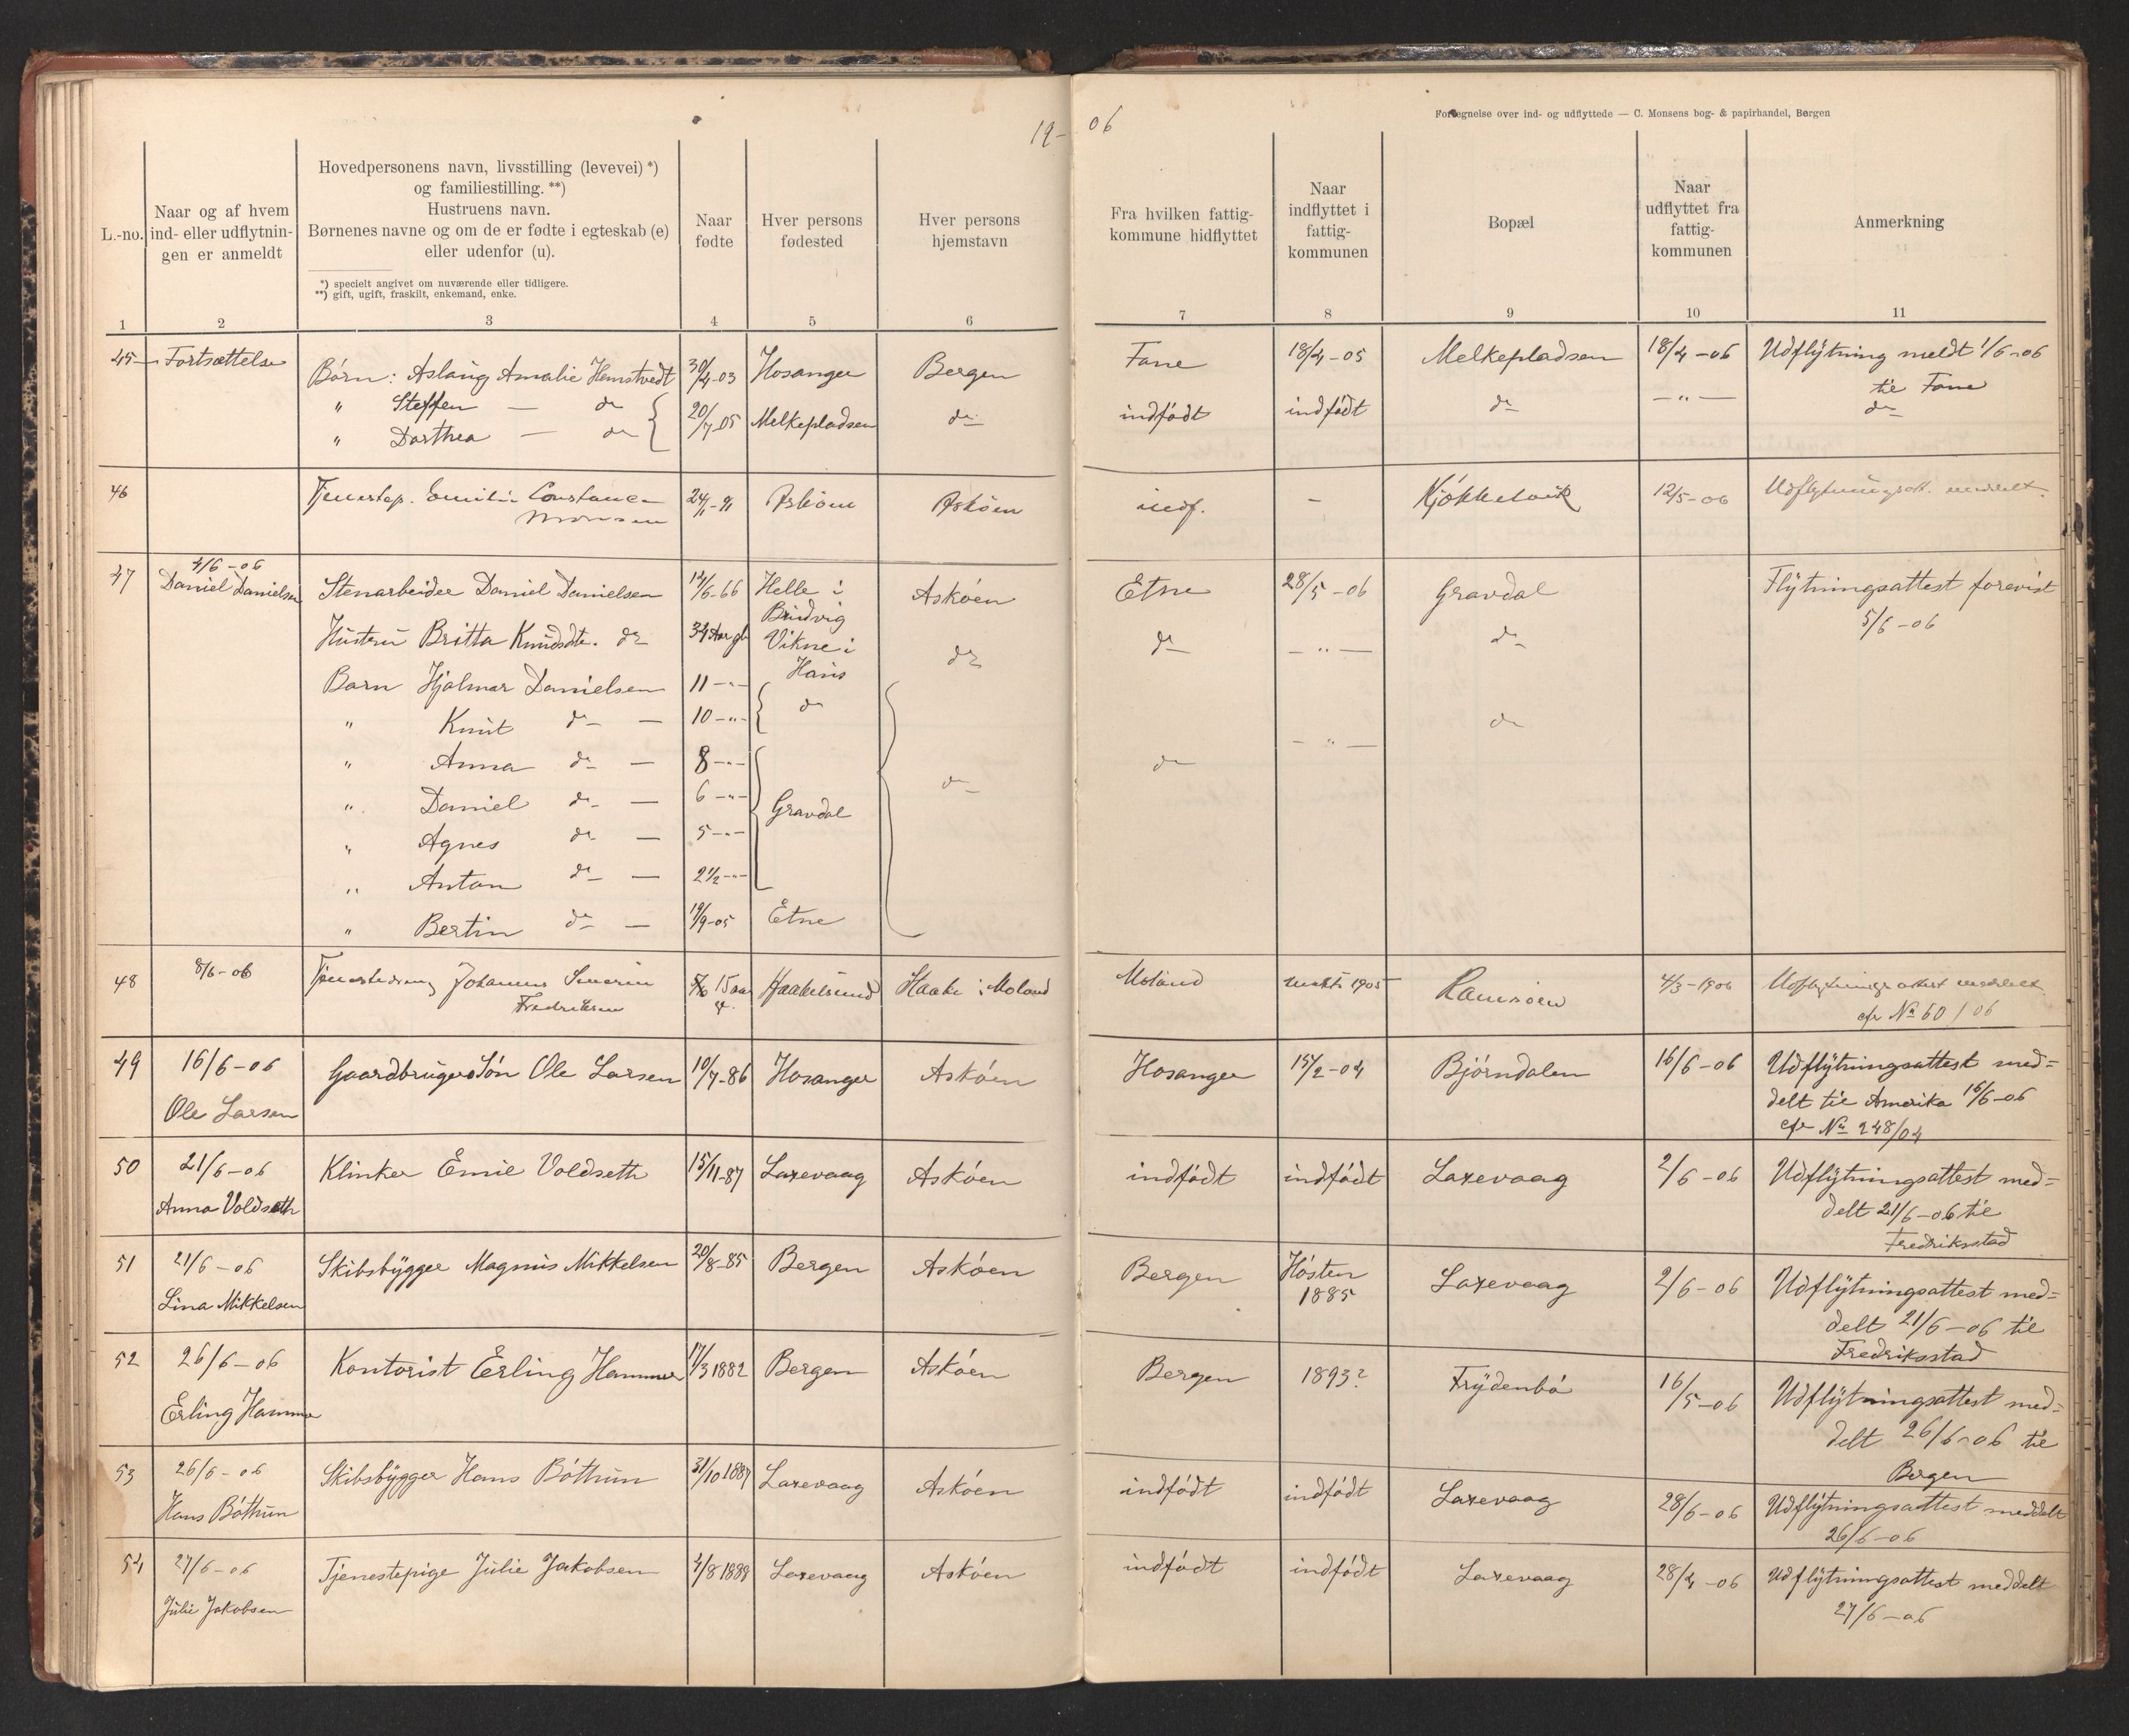 19-06
Fortegnelse over ind- og udflyttede — C. Monsens bog- & papirhandel, Bergen
L.-no.
Naar og af hvem
ind- eller udflytnin-
gen er anmeldt
Hovedpersonens navn, livsstilling (levevei) *)
og familiestilling. **)
Hustruens navn.
Børnenes navne og om de er fødte i egteskab (e)
eller udenfor (u).
*) specielt angivet om nuværende eller tidligere.
**) gift, ugift, fraskilt, enkemand, enke.
Naar
fødte
Hver persons
fødested
Hver persons
hjemstavn
Fra hvilken fattig-
kommune hidflyttet
Naar
indflyttet i
fattig-
kommunen
Bopæl
Naar
udflyttet fra
fattig-
kommunen
Anmerkning
1 2 3 4 5 6 7 8 9 10 11
45 Fortsættelse Børn: Aslaug Amalie Hemstvedt 30/4-03 Hosanger Bergen Fane 18/4-05 Melkepladsen 18/4-06 Udflytning meldt 1/6-06
til Fane
" Steffen — do 20/7-05 Melkepladsen do indfødt indfødt do — " — do
" Dorthea — do
46 Tjenestep. Emilie Constance 24/11-91 Askøen Askøen indf. - Kjøkkelvik 12/5-06 Udflytningsatt. meddelt.
Monsen
47 4/6-06
Daniel Danielsen Stenarbeider Daniel Danielsen 14/6-66 Helle i Askøen Etne 28/5-06 Gravdal Flytningsattest forevist
Brudvig 5/6-06
Hustru Britta Knudsdtr. do 34 Aar gl Vikne i do do — " — do
Haus
Barn Hjalmar Danielsen 11 - " -
" Knut do — 10 - " - do do
" Anna do — 8 - " - do — " —
" Daniel do — 6 - " - Gravdal do
" Agnes do — 5 - " -
" Anton do — 2 1/2 - " -
" Bertin do — 19/9-05 Etne
48 8/6-06 Tjenestedreng Johannes Severin 15 aar Haakelsund Haake i Moland Moland 1905 Ramsøen 4/3-1906 Udflytningsattest meddelt
Fredriksen gl. cfr No 60/06
49 16/6-06 Gaardbrugersøn Ole Larsen 10/7-86 Hosanger Askøen Hosanger 15/2-04 Bjørndalen 16/6-06 Udflytningsattest med=
Ole Larsen delt til Amerika 16/6-06
cfr No 248/04
50 21/6-06 Klinker Emil Voldseth 15/11-87 Laxevaag Askøen indfødt indfødt Laxevaag 2/6-06 Udflytningsattest med=
Anna Voldseth delt 21/6-06 til
Fredriksstad
51 21/6-06 Skibsbygger Magnus Mikkelsen 20/8-85 Bergen Askøen Bergen Høsten Laxevaag 2/6-06 Udflytningsattest med=
Lina Mikkelsen 1885 delt 21/6-06 til
Fredriksstad
52 26/6-06 Kontorist Erling Hammer 17/3 1882 Bergen Askøen Bergen 1893? Frydenbø 16/5-06 Udflytningsattest med=
Erling Hammer delt 26/6-06 til
Bergen
53 26/6-06 Skibsbygger Hans Bøthun 31/10 1887 Laxevaag Askøen indfødt indfødt Laxevaag 28/6-06 Udflytningsattest meddelt
Hans Bøthun 26/6-06
54 27/6-06 Tjenestepige Julie Jakobsen 4/8 1888 Laxevaag Askøen indfødt indfødt Laxevaag 28/4-06 Udflytningsattest meddelt
Julie Jakobsen 27/6-06